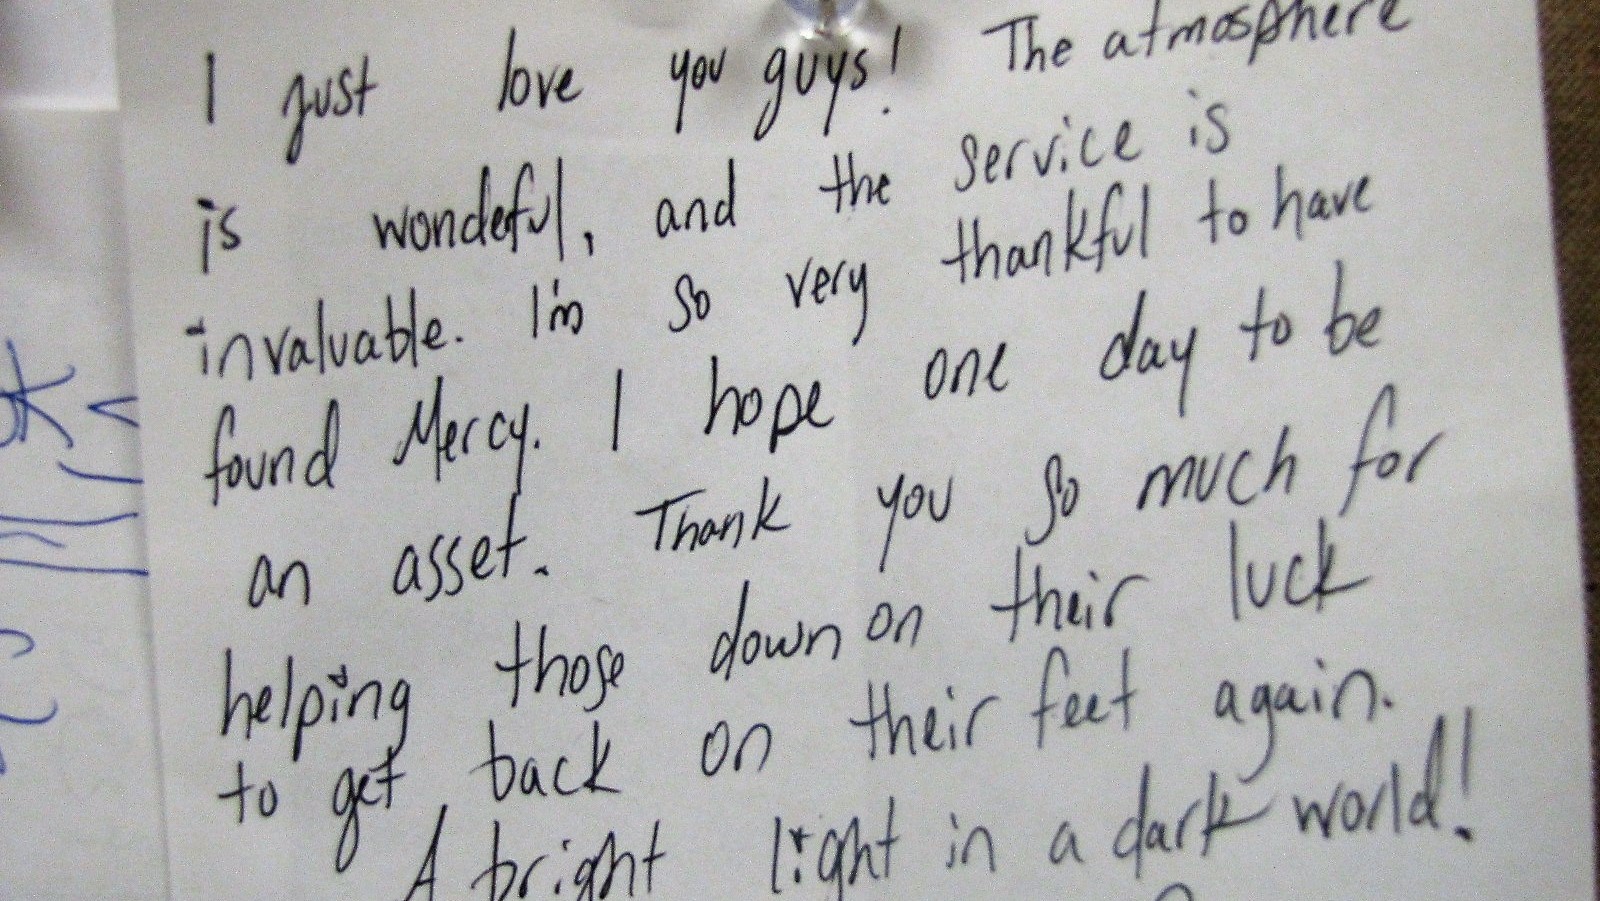 I just love you guys! The atmosphere
is wondeful, and the service is
invaluable. I'm so very thankful to have
found Mercy. I hope one day to be
an asset. Thank you so much for
helping those down on their luck
to get back on their feet again.
A bright light in a dark world!